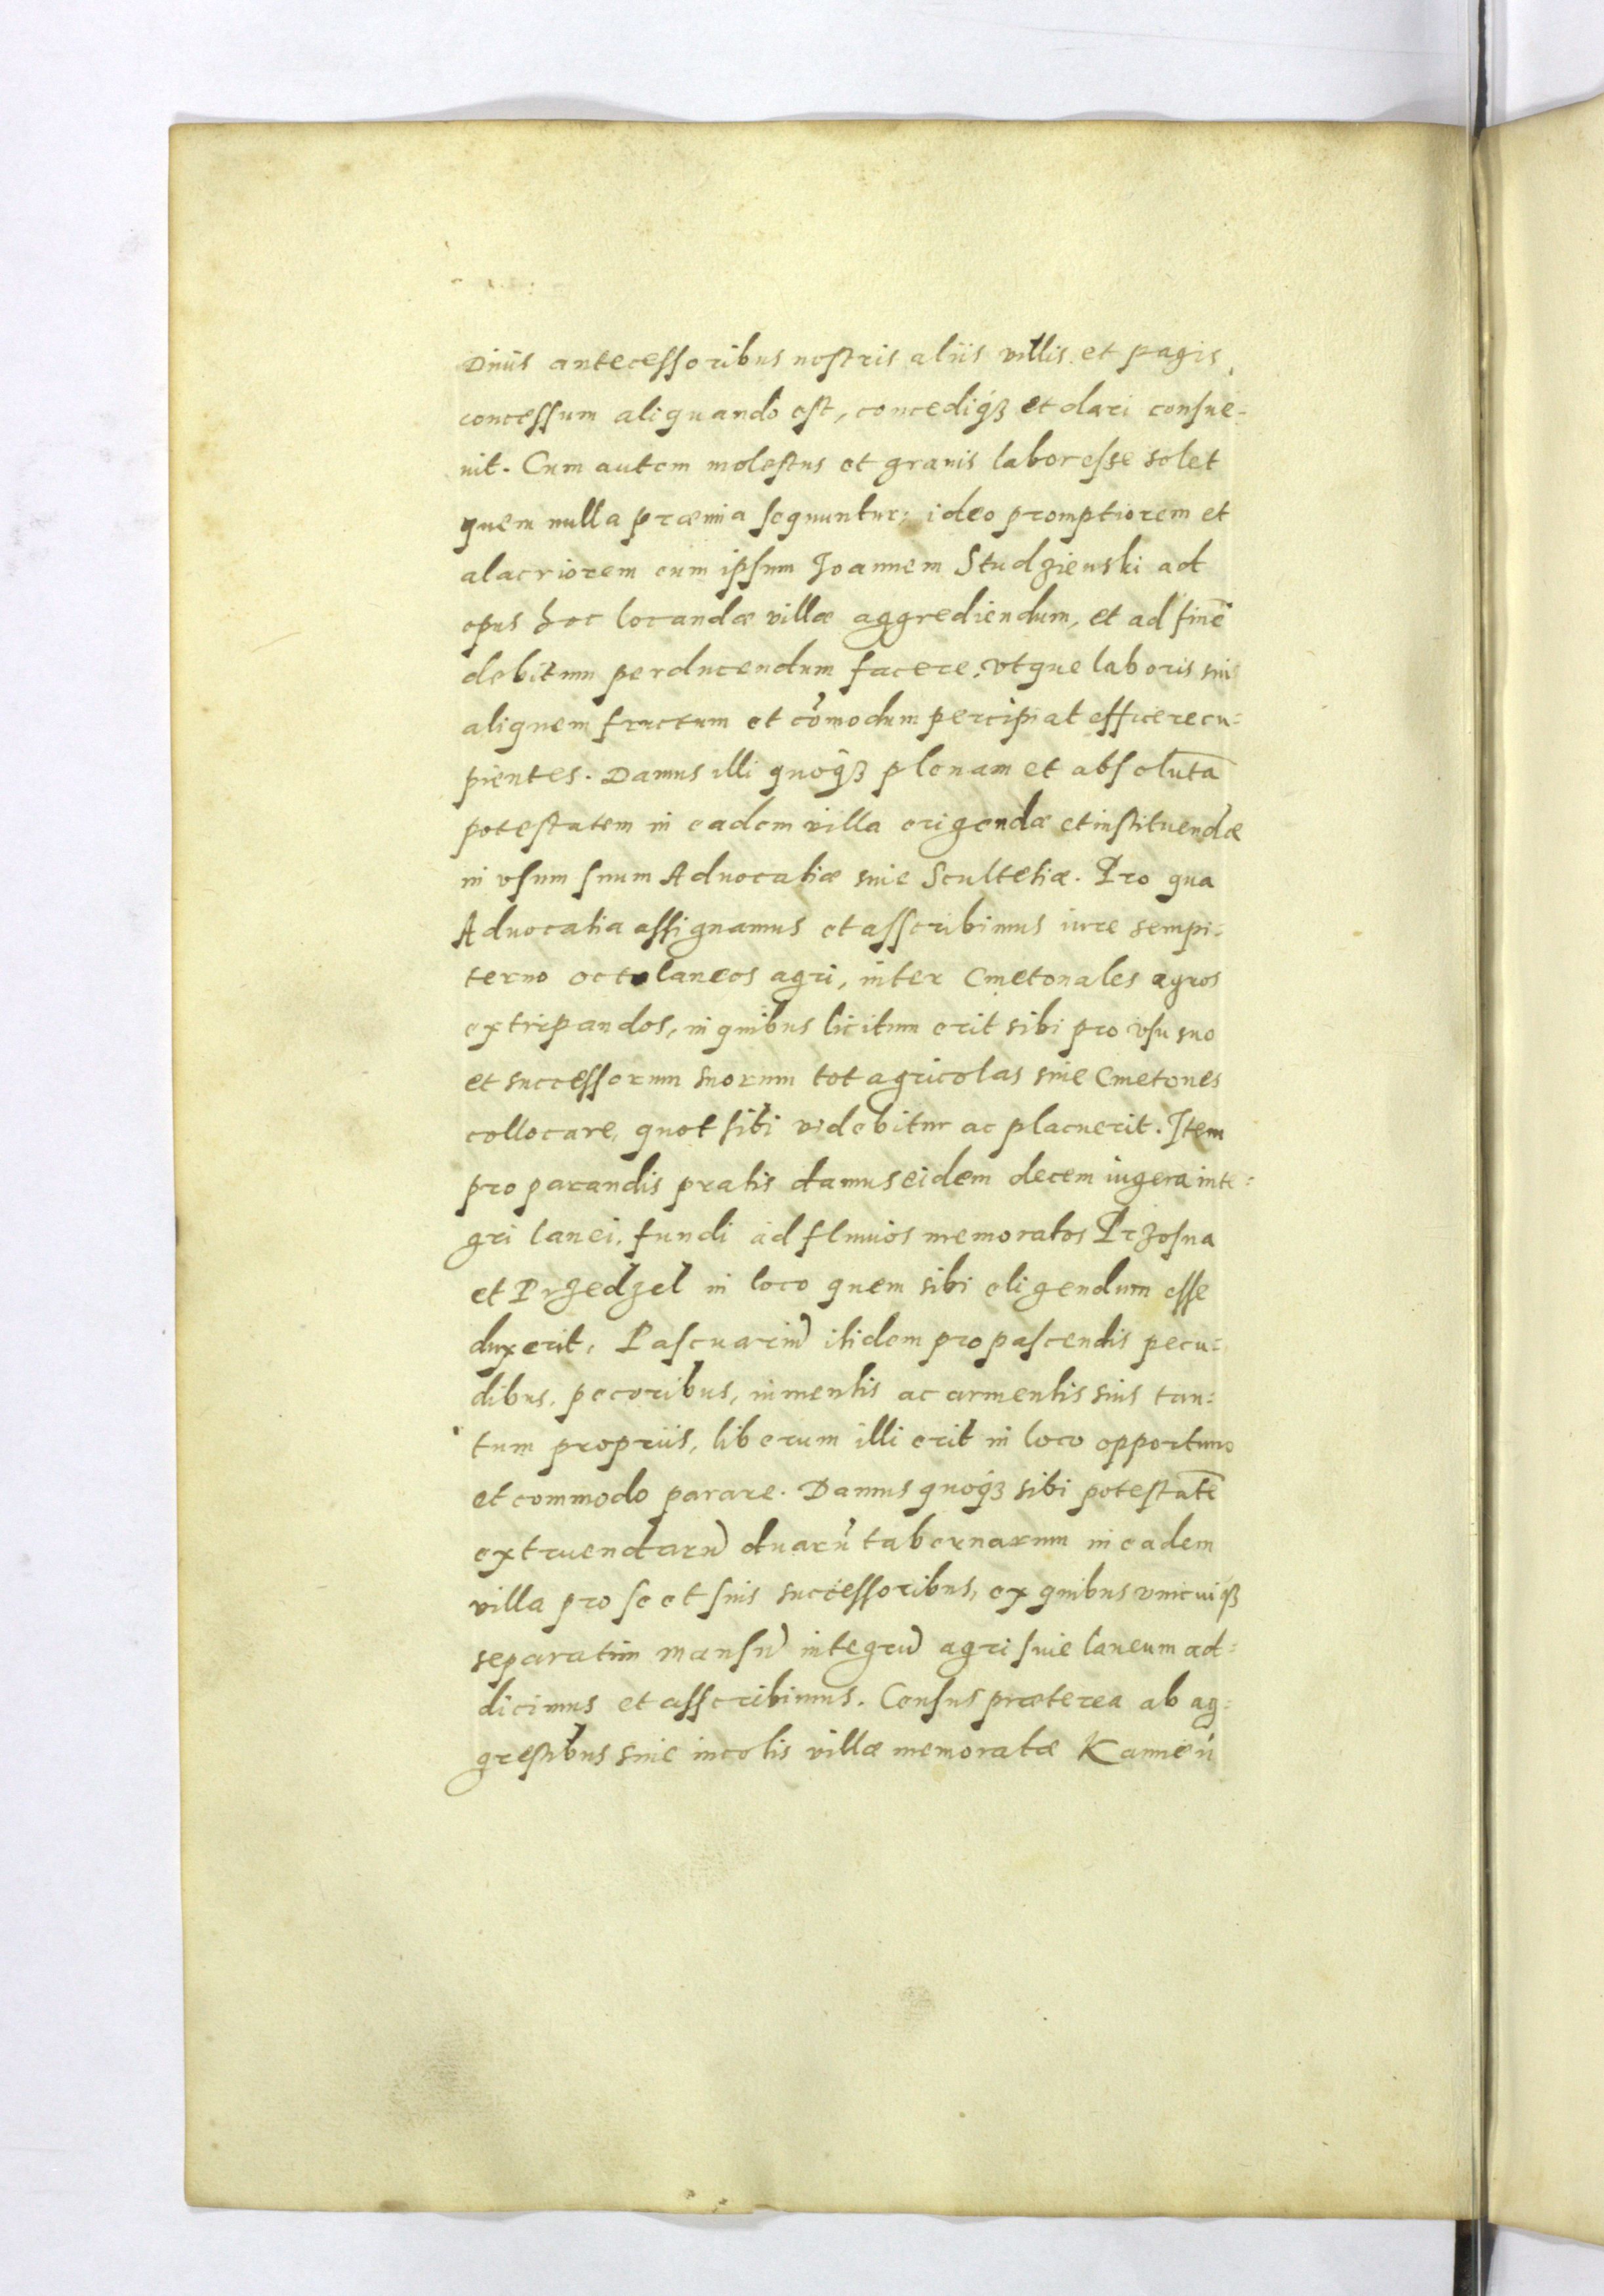 Diuis antecessoribus nostris aliis villis et pagis,
concessum aliquando est, concediq́ꝫ et dari consue-
uit. Cum autem molestus et grauis labor esse solet
quem nulla præmia sequuntur: ideo promptiorem et
alacriorem eum ipsum Joannem Studzienski ad
opus hoc locandæ villæ aggrediendum, et ad finē
debitum perducendum facere, vtque laboris sui
aliquem fructum et cōmodum percipiat efficere cu-
pientes. Damus illi quoq́ꝫ plenam et absolutā
potestatem in eadem villa erigendæ et instituendæ
in vsum suum Aduocatiæ siue Scultetiæ. Pro qua
Aduocatia assignamus et asscribimus iure sempi-
terno octo laneos agri, inter Cmetonales agros
extirpandos, in quibus licitum erit sibi pro vsu suo
et successorum suorum tot agricolas siue Cmetones
collocare, quot sibi videbitur ac placuerit. Item
pro parandis pratis damus eidem decem iugera inte-
gri lanei, fundi ad fluuios memoratos Przosna
et Przedzel in loco quem sibi eligendum esse
duxerit. Pascuariū itidem pro pascendis pecu-
dibus, pecoribus, iumentis ac armentis suis tan-
tum propriis, liberum illi erit in loco opportuno
et commodo parare. Damus quoq́ꝫ sibi potestatē
extruendarū duarū tabernarum in eadem
villa pro se et suis successoribus, ex quibus vnicuiq́ꝫ
separatim mansū integrū agri siue laneum ad-
dicimus et asscribimus. Census præterea ab ag-
grestibus siue incolis villæ memoratæ Kamień